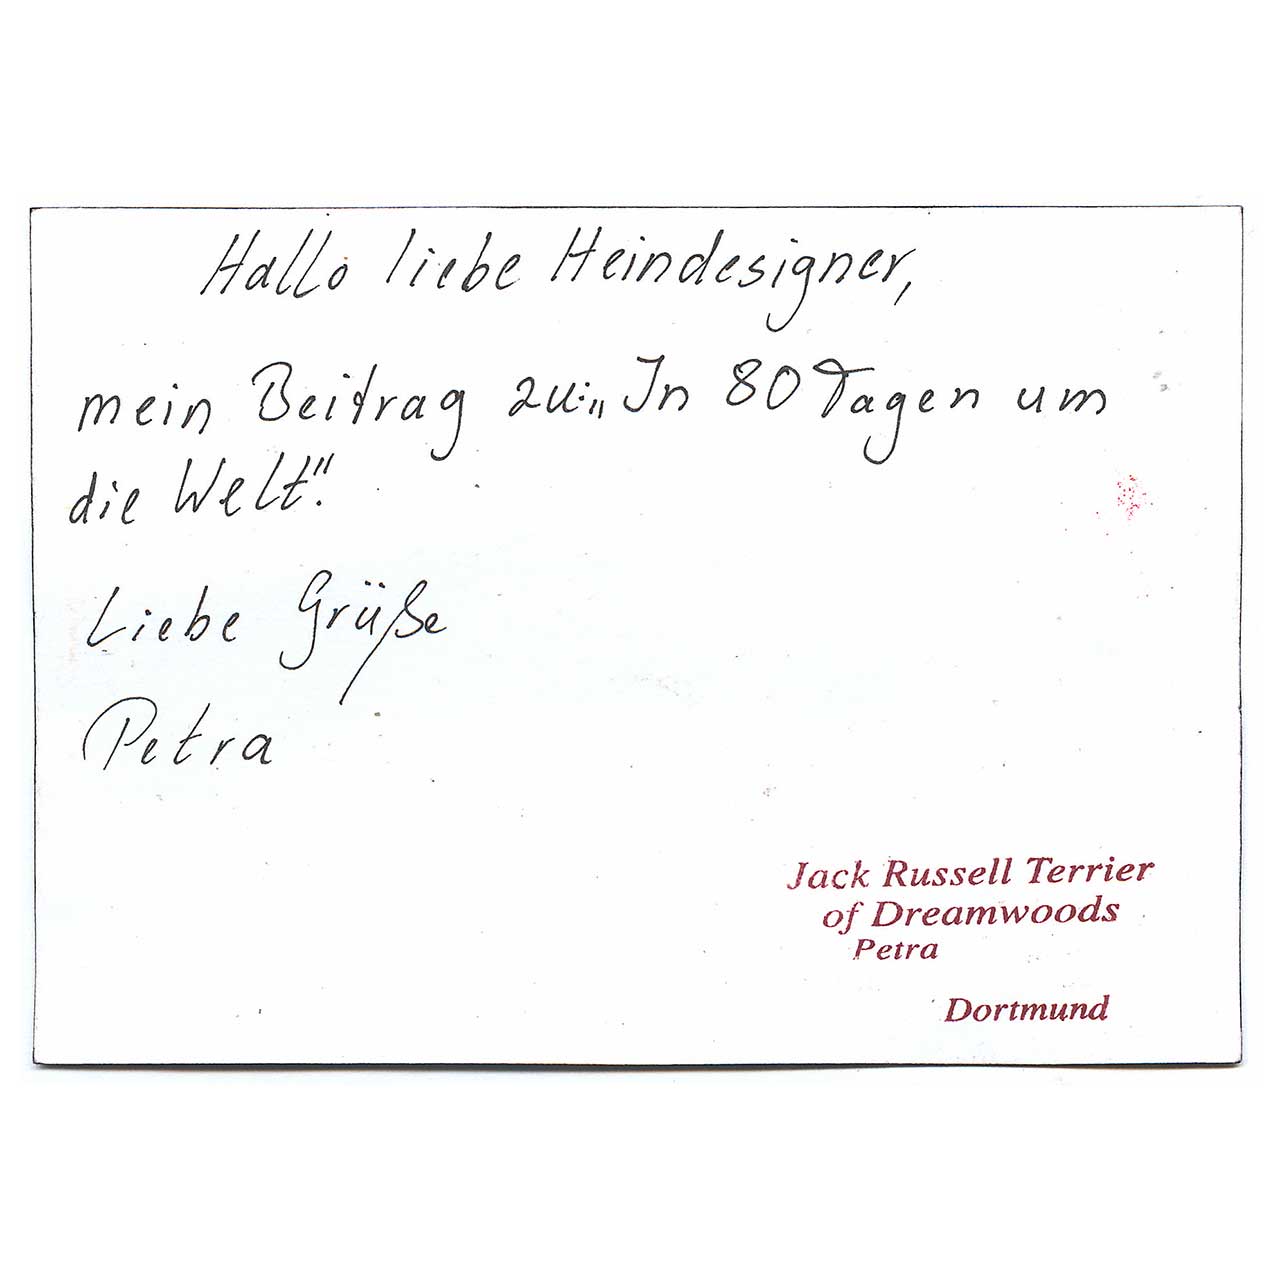 Hallo liebe Heindesigner,
mein Beitrag zu: „In 80 Tagen um
die Welt".
Liebe Grüße
Petra
Jack Russell Terrier
of Dreamwoods
Petra
Dortmund